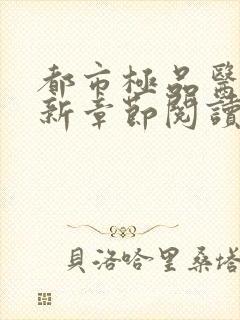 都市極品醫
新章節閱讀
貝洛哈里桑塔